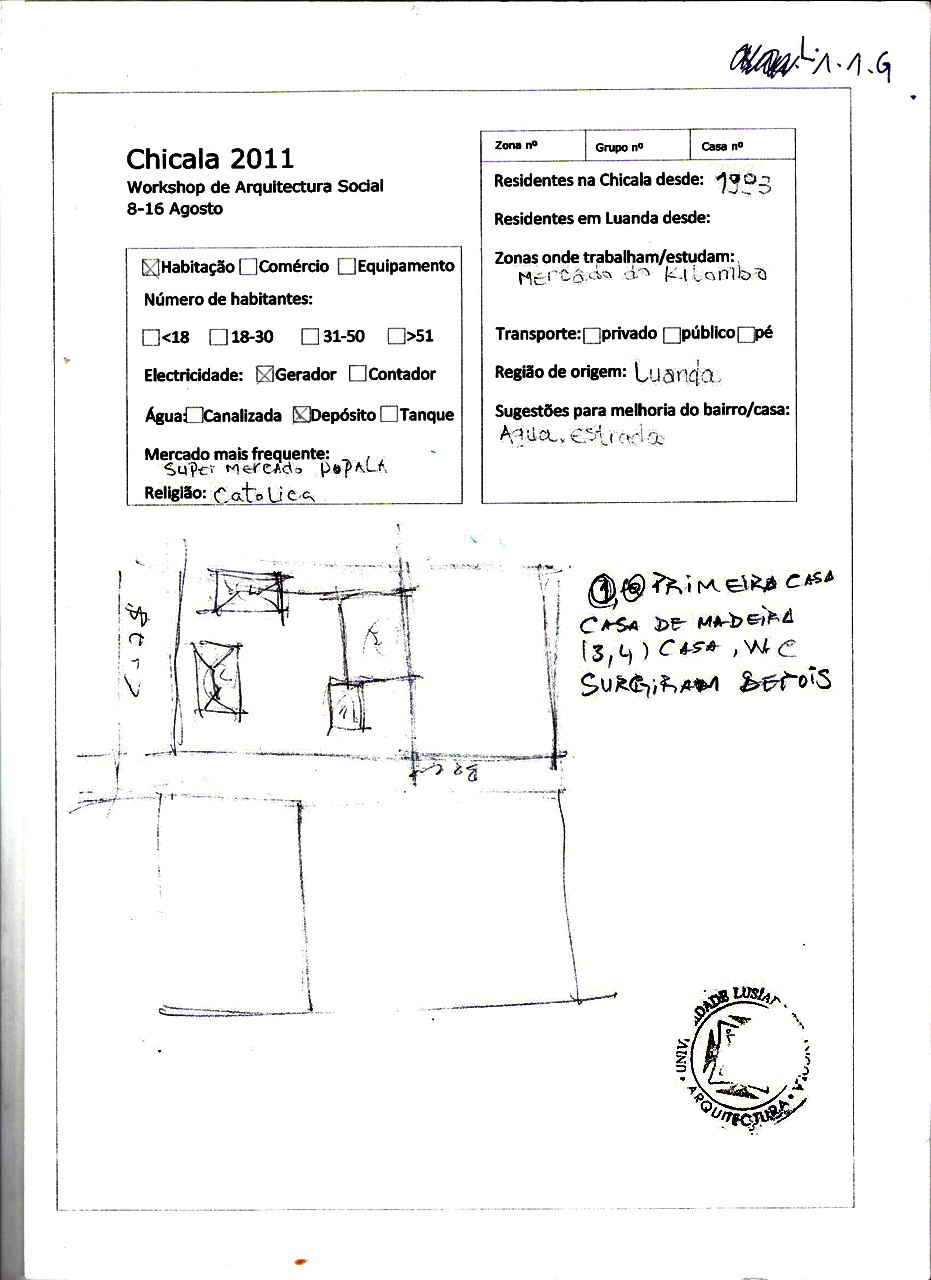 1.1.G
Chicala 2011
Workshop de Arquitectura Social
8-16 Agosto
Habitação Comércio Equipamento
Número de habitantes:
<18 18-30 31-50 >51
Electricidade: Gerador Contador
Água: Canalizada Depósito Tanque
Mercado mais frequente:
SUPER MERCADO POPALA
Religião: Catolica
Zona nº Grupo nº Casa nº
Residentes na Chicala desde: 1993
Residentes em Luanda desde:
Zonas onde trabalham/estudam:
Mercado do Kilombo
Transporte: privado público pé
Região de origem: Luanda
Sugestões para melhoria do bairro/casa:
Agua, estrada
1, PRIMEIRA CASA
CASA DE MADEIRA
(3,4) CASA, WC
SURGIRAM DEPOIS
ARQUITECTURA